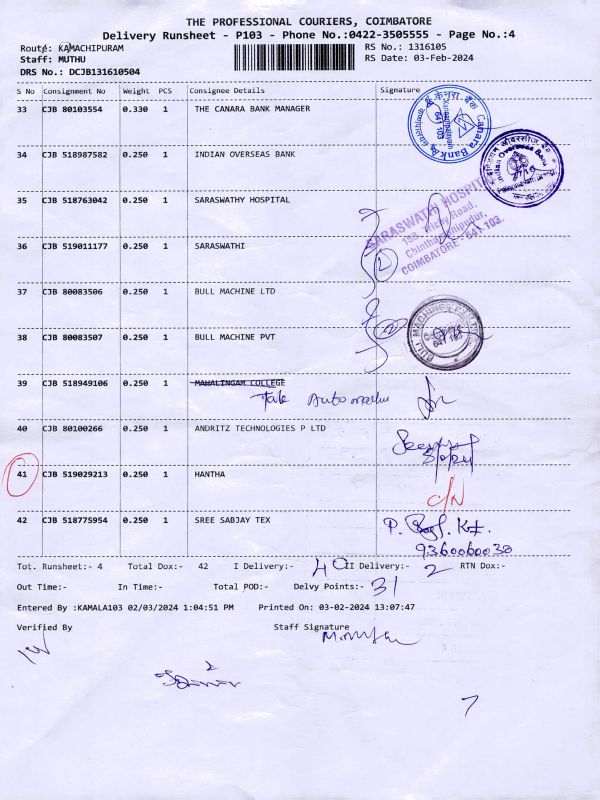 THE PROFESSIONAL COURIERS, COIMBATORE
Delivery Runsheet - P103 - Phone No.:0422-3505555 - Page No.:4
Route: KAMACHIPURAM
RS No.: 1316105
Staff: MUTHU
RS Date: 03-Feb-2024
DRS No.: DCJB131610504
S No Consignment No Weight PCS Consignee Details Signature
33 CJB 80103554 0.330 1 THE CANARA BANK MANAGER
Canara Bank
34 CJB 518987582 0.250 1 INDIAN OVERSEAS BANK
Indian Overseas Bank
35 CJB 518763042 0.250 1 SARASWATHY HOSPITAL
SARASWATHI HOSPITAL
Road,
COIMBATORE - 641 103.
36 CJB 519011177 0.250 1 SARASWATHI
37 CJB 80083506 0.250 1 BULL MACHINE LTD
38 CJB 80083507 0.250 1 BULL MACHINE PVT
BULL MACHINES
39 CJB 518949106 0.250 1 MAHALINGAM COLLEGE
40 CJB 80100266 0.250 1 ANDRITZ TECHNOLOGIES P LTD
41 CJB 519029213 0.250 1 HANTHA
C/N
42 CJB 518775954 0.250 1 SREE SABJAY TEX
9360060030
Tot. Runsheet:- 4 Total Dox:- 42 I Delivery:- 40 II Delivery:- 2 RTN Dox:-
Out Time:- In Time:- Total POD:- Delvy Points:- 31
Entered By :KAMALA103 02/03/2024 1:04:51 PM Printed On: 03-02-2024 13:07:47
Verified By Staff Signature